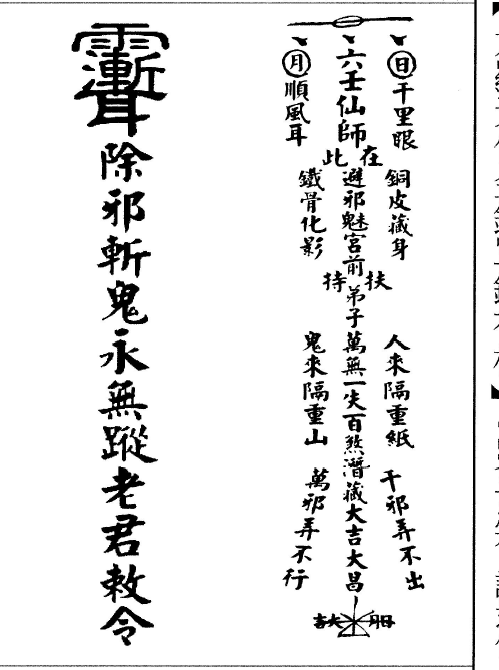 日千里眼
銅皮藏身
人來隔重紙
千邪弄不出
六壬仙師
在此
避邪魅宮前
扶持
弟子萬無一失百煞潛藏大吉大昌
月順風耳
鐵骨化影
鬼來隔重山
萬邪弄不行
除邪斬鬼永無蹤老君敕令